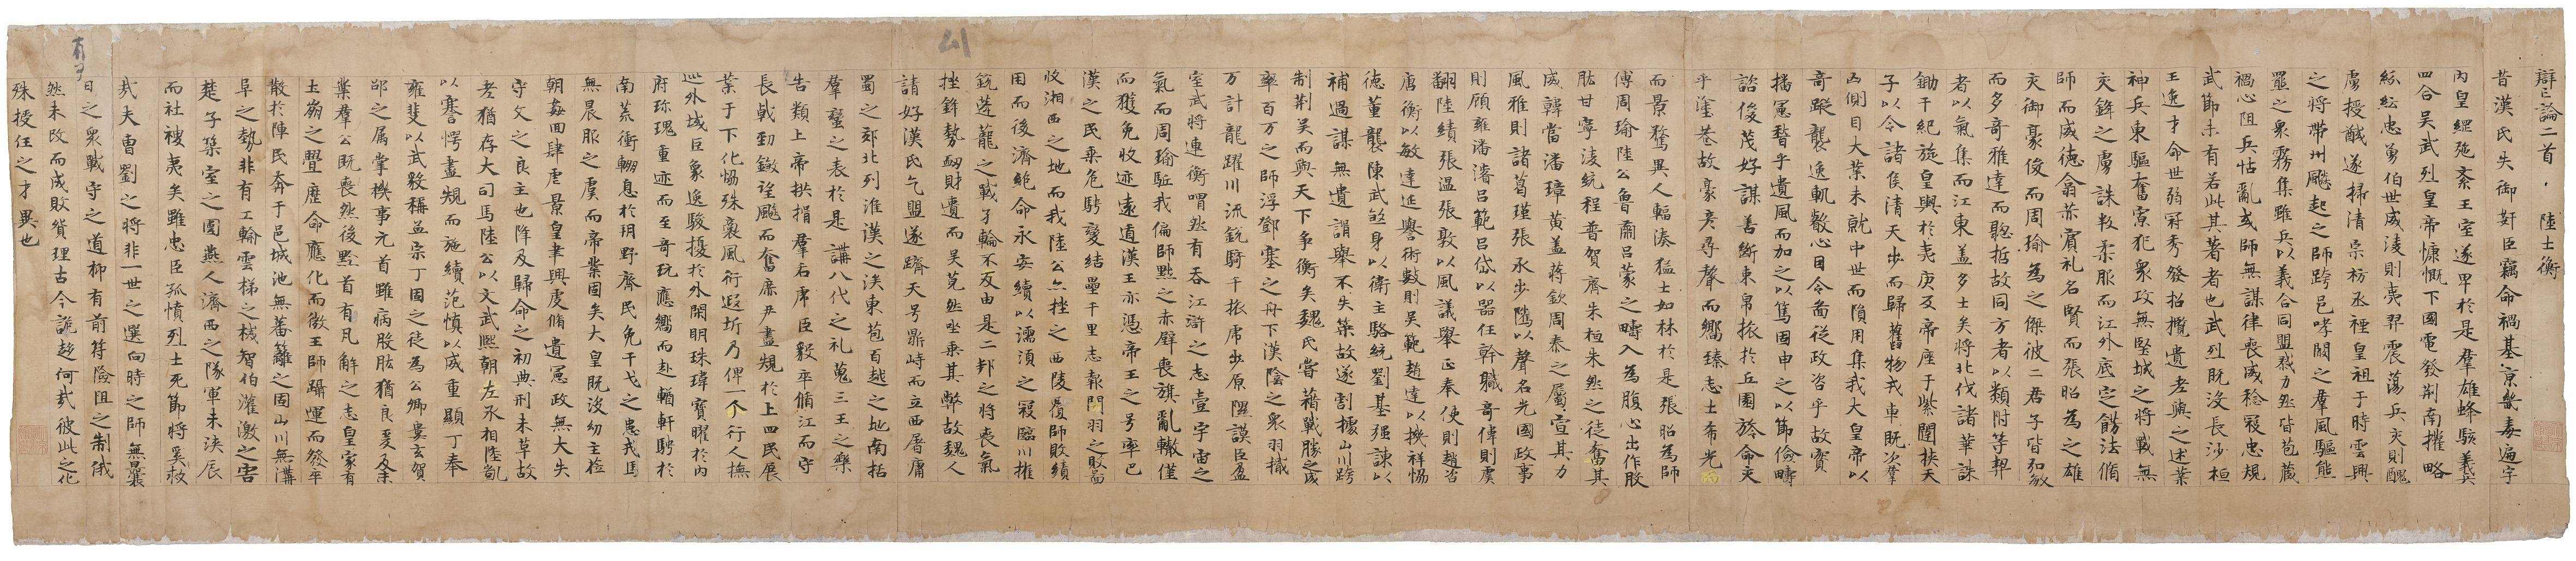 辯亡論二首 陸士衡
昔漢氏失御奸臣竊命禍基京畿毒遍宇
內皇綱弛紊王室遂卑於是群雄蜂駭義兵
四合吳武烈皇帝慷慨下國電發荊南權略
紛紜忠勇伯世威淩則夷羿震蕩兵交則醜
虜授馘遂掃清宗祊丞禋皇祖于時雲興
之將帶州飈起之師跨邑哮闞之群風驅熊
羆之衆霧集雖兵以義合同盟戮力然皆苞藏
禍心阻兵怙亂或師無謀律喪威稔寇忠規
武節未有若此其著者也武烈既沒長沙桓
王逸才命世弱冠秀發招攬遺老與之述業
神兵東驅奮寡犯衆攻無堅城之將戰無
交鋒之虜誅叛柔服而江外底定飭法脩
師而威德翕赫賓礼名賢而張昭為之雄
交御豪俊而周瑜為之傑彼二君子皆弘敏
而多奇雅達而聰哲故同方者以類附等契
者以氣集而江東盖多士矣將北伐諸華誅
鋤干紀旋皇輿於夷庚反帝座于紫闥挾天
子以令諸侯清天步而歸舊物戎車既次群
凶側目大業未就中世而隕用集我大皇帝以
奇蹤襲逸軌叡心因令啚從政咨乎故實
播憲稽乎遺風而加之以篤固申之以節儉疇
諮俊茂好謀善斷束帛旅於丘園旌命交
乎塗巷故豪彥尋聲而嚮臻志士希光
而景騖異人輻湊猛士如林於是張昭為師
傅周瑜陸公魯肅呂蒙之疇入為腹心出作股
肱甘寧淩統程普賀齊朱桓朱然之徒奮其
威韓當潘璋黃盖蔣欽周泰之屬宣其力
風雅則諸葛瑾張承步騭以聲名光國政事
則顧雍潘濬呂範呂岱以器任幹職奇偉則虞
翻陸績張温張敦以風議舉正奉使則趙咨
唐衡以敏達延譽術數則吳範趙達以禨祥恊
德董襲陳武煞身以衛主駱統劉基强諫以
補過謀無遺諝舉不失策故遂割據山川跨
制荊吳而與天下爭衡矣魏氏嘗藉戰勝之威
率百万之師浮鄧塞之舟下漢陰之衆羽檝
万計龍躍川流銳騎千旅虎步原隰謨臣盈
室武將連衡喟然有吞江滸之志壹宇宙之
氣而周瑜駈我偏師黜之赤壁喪旗亂轍僅
而獲免收迹遠遁漢王亦憑帝王之号率巴
漢之民乘危騁變結壘千里志報關羽之敗啚
收湘西之地而我陸公亦挫之西陵覆師敗績
困而後濟絕命永安續以濡須之寇臨川摧
銳蓬蘢之戰孑輪不反由是二邦之將喪氣
挫鋒勢衂財遺而吳莞然坐乘其弊故魏人
請好漢氏乞盟遂躋天号鼎峙而立西屠庸
蜀之郊北列淮漢之涘東苞百越之地南括
群蠻之表於是講八代之礼蒐三王之樂
告類上帝拱揖群后虎臣毅卒循江而守
長戟勁鎩望飈而奮庶尹盡規於上四民展
業于下化恊殊裔風衍遐圻乃俾一个行人撫
巡外域巨象逸駿擾於外閑明珠瑋寶曜於內
府珎瑰重迹而至奇玩應嚮而赴輶軒騁於
南荒衝輣息於朔野齊民免干戈之患戎馬
無晨服之虞而帝業固矣大皇既沒幼主莅
朝姦回肆虐景皇聿興虔脩遺憲政無大失
守文之良主也降及歸命之初典刑未革故
老猶存大司馬陸公以文武熙朝左丞相陸凱
以謇愕盡規而施績范慎以威重顯丁奉
離斐以武毅稱孟宗丁固之徒為公卿婁玄賀
邵之属掌機事元首雖病股肱猶良爰及末
葉群公既喪然後黔首有瓦解之志皇家有
土崩之舋歷命應化而微王師躡運而發卒
散於陳民奔于邑城池無蕃籬之固山川無溝
阜之勢非有工輪雲梯之械智伯灌激之害
楚子築室之圍燕人濟西之隊軍未浹辰
而社稷夷矣雖忠臣孤憤烈士死節將奚救
哉夫曹劉之將非一世之選向時之師無曩
日之衆戰守之道抑有前符險阻之制俄
然未改而成敗貿理古今詭趍何哉彼此之化
殊授任之才異也